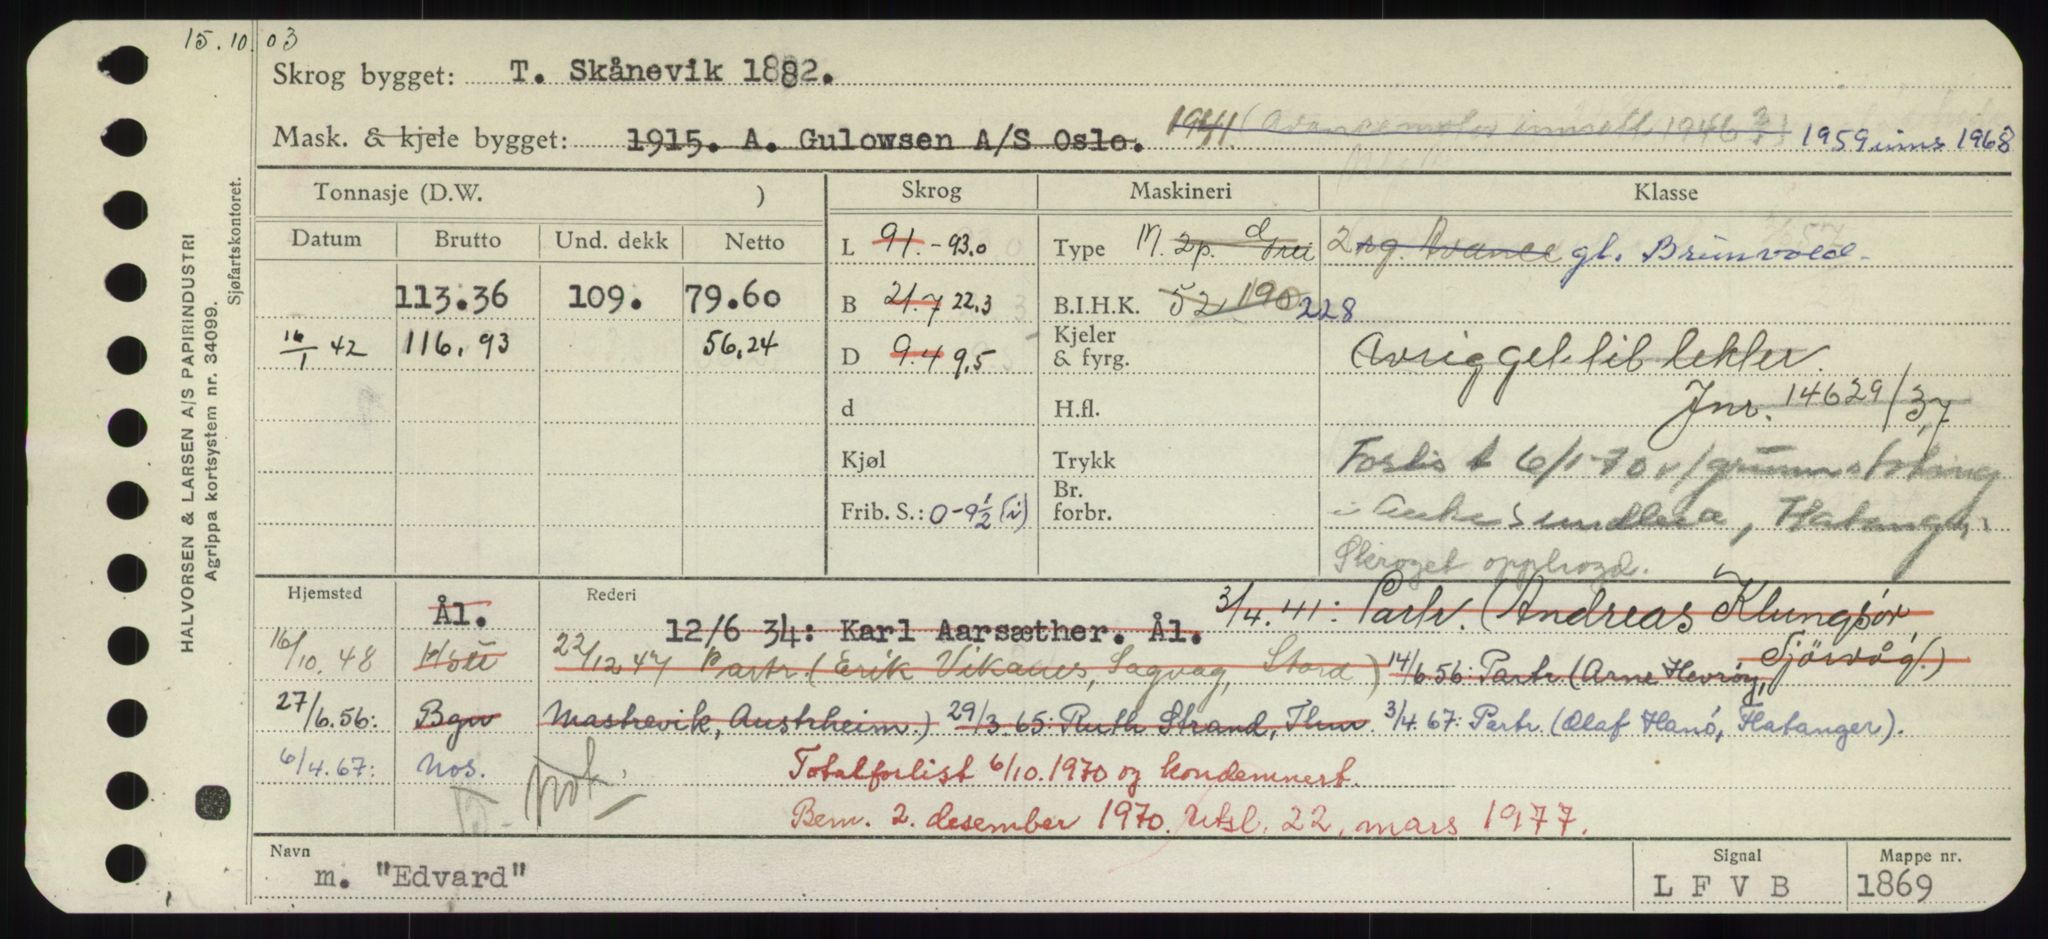 15.10.03
Skrog bygget: T. Skånevik 1882.
Mask. & kjele bygget: 1915. A. Gulowsen A/S Oslo. 1941. (Avancemotor innsatt 1946) 1959 inns 1968
Tonnasje (D.W. ) Skrog Maskineri Klasse
Datum Brutto Und. dekk Netto L 91.-93.0 Type M. 2p. 2 sg. Avance gl. Brunvold
113.36 109. 79.60 B 21.7 22.3 B.I.H.K. 52 190 228
16/1 42 116.93 56,24 D 9.4 9.5 Kjeler & fyrg. Avrigget til lekter.
d H.fl. Jnr. 14629/37
Kjøl Trykk Forlis 6/1-70 v/grunnstøting
Frib. S.: 0-9½ (i) Br. forbr. i sundleia, Hatanger
Skroget opphozd.
Hjemsted Ål. Rederi 12/6 34: Karl Aarsæther. Ål. 3/4.41: Partr. (Andreas Klungsör,
Sjörvåg.)
16/10.48 22/12 47 Partr. (Erik Vikanes, Sagvag, Stord) 14/6 56: Partr (Arne Hevrøy,
27/6.56: Bgn Mastrevik, Austrheim.) 29/3.65: Ruth Strand, Thm. 3/4.67: Partr. (Olaf Hanö, Hatanger).
6/4.67: Nos. not. Totalforlist 6/10.1970 og kondemnert.
Bem. 2. desember 1970. Utsl. 22. mars 1977.
Navn m. "Edvard" Signal L F V B Mappe nr. 1869
HALVORSEN & LARSEN A/S PAPIRINDUSTRI
Agrippa kortsystem nr. 34099.
Sjøfartskontoret.